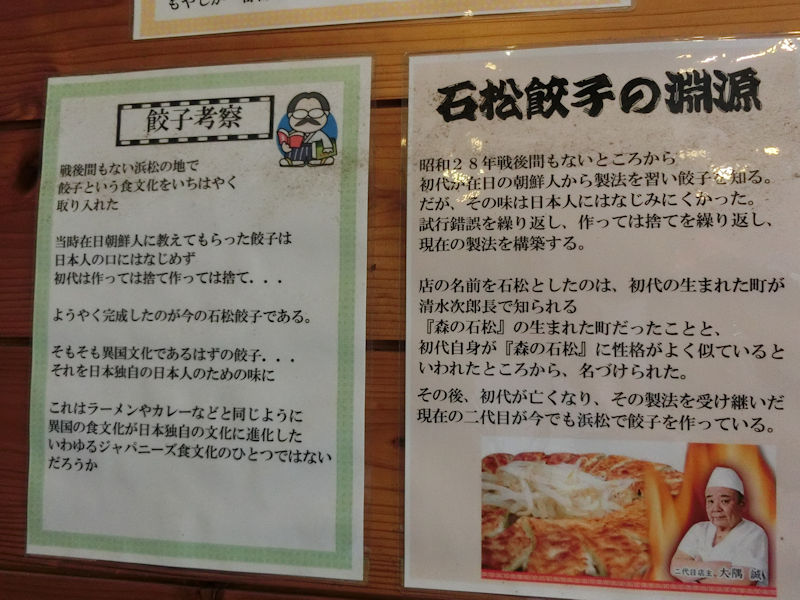 餃子考察
戦後間もない浜松の地で
餃子という食文化をいちはやく
取り入れた
当時在日朝鮮人に教えてもらった餃子は
日本人の口にはなじめず
初代は作っては捨て作っては捨て...
ようやく完成したのが今の石松餃子である。
そもそも異国文化であるはずの餃子...
それを日本独自の日本人のための味に
これはラーメンやカレーなどと同じように
異国の食文化が日本独自の文化に進化した
いわゆるジャパニーズ食文化のひとつではない
だろうか
石松餃子の淵源
昭和28年戦後間もないところから
初代が在日の朝鮮人から製法を習い餃子を知る。
だが、その味は日本人にはなじみにくかった。
試行錯誤を繰り返し、作っては捨てを繰り返し、
現在の製法を構築する。
店の名前を石松としたのは、初代の生まれた町が
清水次郎長で知られる
『森の石松』の生まれた町だったことと、
初代自身が『森の石松』に性格がよく似ていると
いわれたところから、名づけられた。
その後、初代が亡くなり、その製法を受け継いだ
現在の二代目が今でも浜松で餃子を作っている。
二代目店主 大隅 誠